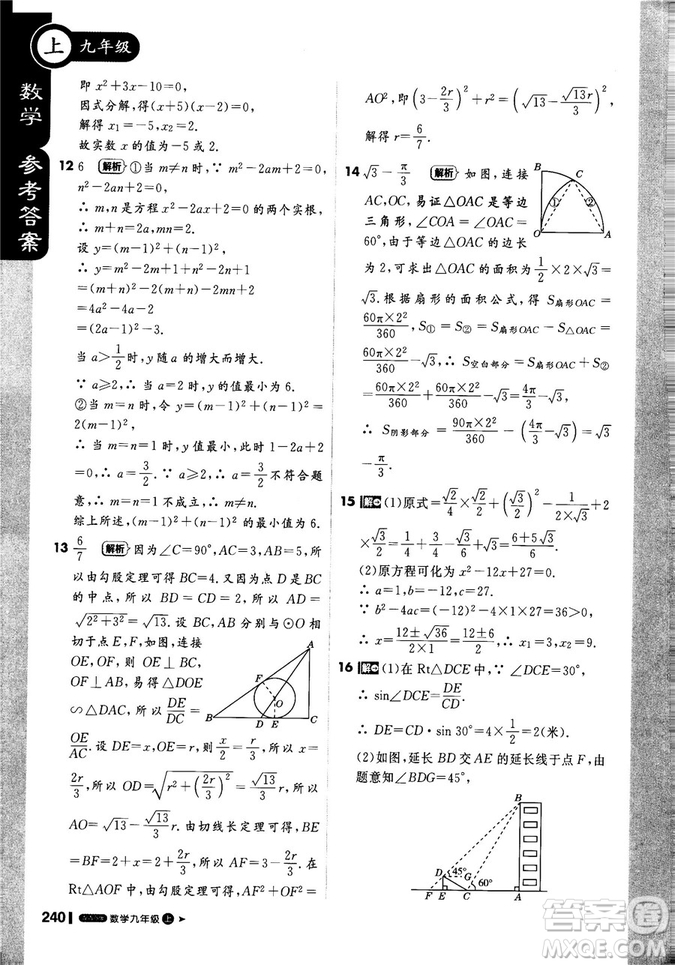 上 九年级
数学 参考答案
即 x²+3x-10=0,
因式分解,得(x+5)(x-2)=0,
解得 x₁=-5,x₂=2.
故实数 x 的值为-5或-2.
12 6 解析 ①当 m≠n 时,∵ m²-2am+2=0,
n²-2an+2=0,
∴ m,n 是方程 x²-2ax+2=0 的两个实根,
∴ m+n=2a,mn=2.
设 y=(m-1)²+(n-1)²
∴ y=m²-2m+1+n²-2n+1
=(m+n)²-2(m+n)-2mn+2
=4a²-4a-2
=(2a-1)²-3.
当 a>1/2时,y 随 a 的增大而增大.
∵ a≥2,∴ 当 a=2 时,y 的值最小为 6.
②当 m=n 时,令 y=(m-1)²+(n-1)²=
2(m-1)²,
∴ 当 m=1 时,y 的值最小为 0,∴ 1-2a+
2=0,∴ a=3/2.∵ a≥2,∴ a=3/2不符合题
意,∴ m=1 不成立,∴ m≠n.
综上所述,(m-1)²+(n-1)²的最小值为 6.
13 6/7 解析 因为∠C=90°,AC=3,AB=5,所
以由勾股定理可得 BC=4.又因为点 D 是 BC
的中点,所以 BD=CD=2,所以 AD=
√(2²+3²)=√13.设 BC,AB 分别与⊙O 相
切于点 E,F,如图,连接
OE,OF,则 OE⊥BC,
OF⊥AB,易得△DOE
∽△DAC,所以DE/DC=
OE/AC.设 DE=x,OE=r,则x/2=r/3,所以 x=
2r/3,所以 OD=√(r²+(2r/3)²)=√13/3 r,所以
AO=√13-√13/3 r.由切线长定理可得,BE
=BF=2+2r/3,所以 AF=3-2r/3.在
Rt△AOF 中,由勾股定理可得 AF²+OF²=
A
F
O
B D E C
AO²,即(3-2r/3)²+r²=(√13-√13r/3)²,
解得 r=6/7.
14 √3-π/3 解析 如图,连接
AC,OC,易证△OAC 是等边
三角形,∠COA=∠OAC=
60°,由于等边△OAC 的边长
为 2,可得△OAC 的面积为1/2×2×√3=
√3.根据扇形的面积公式,得 S扇形OAC=
60π×2²/360,S①=S②=S扇形OAC-S△OAC=
60π×2²/360-√3.∴ S空白部分=S扇形OAC+S②
=60π×2²/360+60π×2²/360-√3=4π/3-√3,
∴ S阴影部分=90π×2²/360-(4π/3-√3)=√3
-π/3.
B C
① ②
O A
15 解 (1)原式=√2/4×√2/2+(√3/2)²-1/3+2
×√3/2×√3/3=1/4+3/4-√3/3+1=(6+5√3)/6.
(2)原方程可化为 x²-12x+27=0,
∴ a=1,b=-12,c=27.
∵ b²-4ac=(-12)²-4×1×27=36>0,
∴ x=(12±√36)/(2×1)=(12±6)/2,∴ x₁=3,x₂=9.
16 解 (1)在 Rt△DCE 中,∵ ∠DCE=30°,
∴ sin∠DCE=DE/CD.
∴ DE=CD·sin 30°=4×1/2=2(米).
(2)如图,延长 BD 交 AE 的延长线于点 F,由
题意知∠BDG=45°,
B
D 45° G
60°
F E C A
240 数学九年级 上
答案圈
MXQE.COM